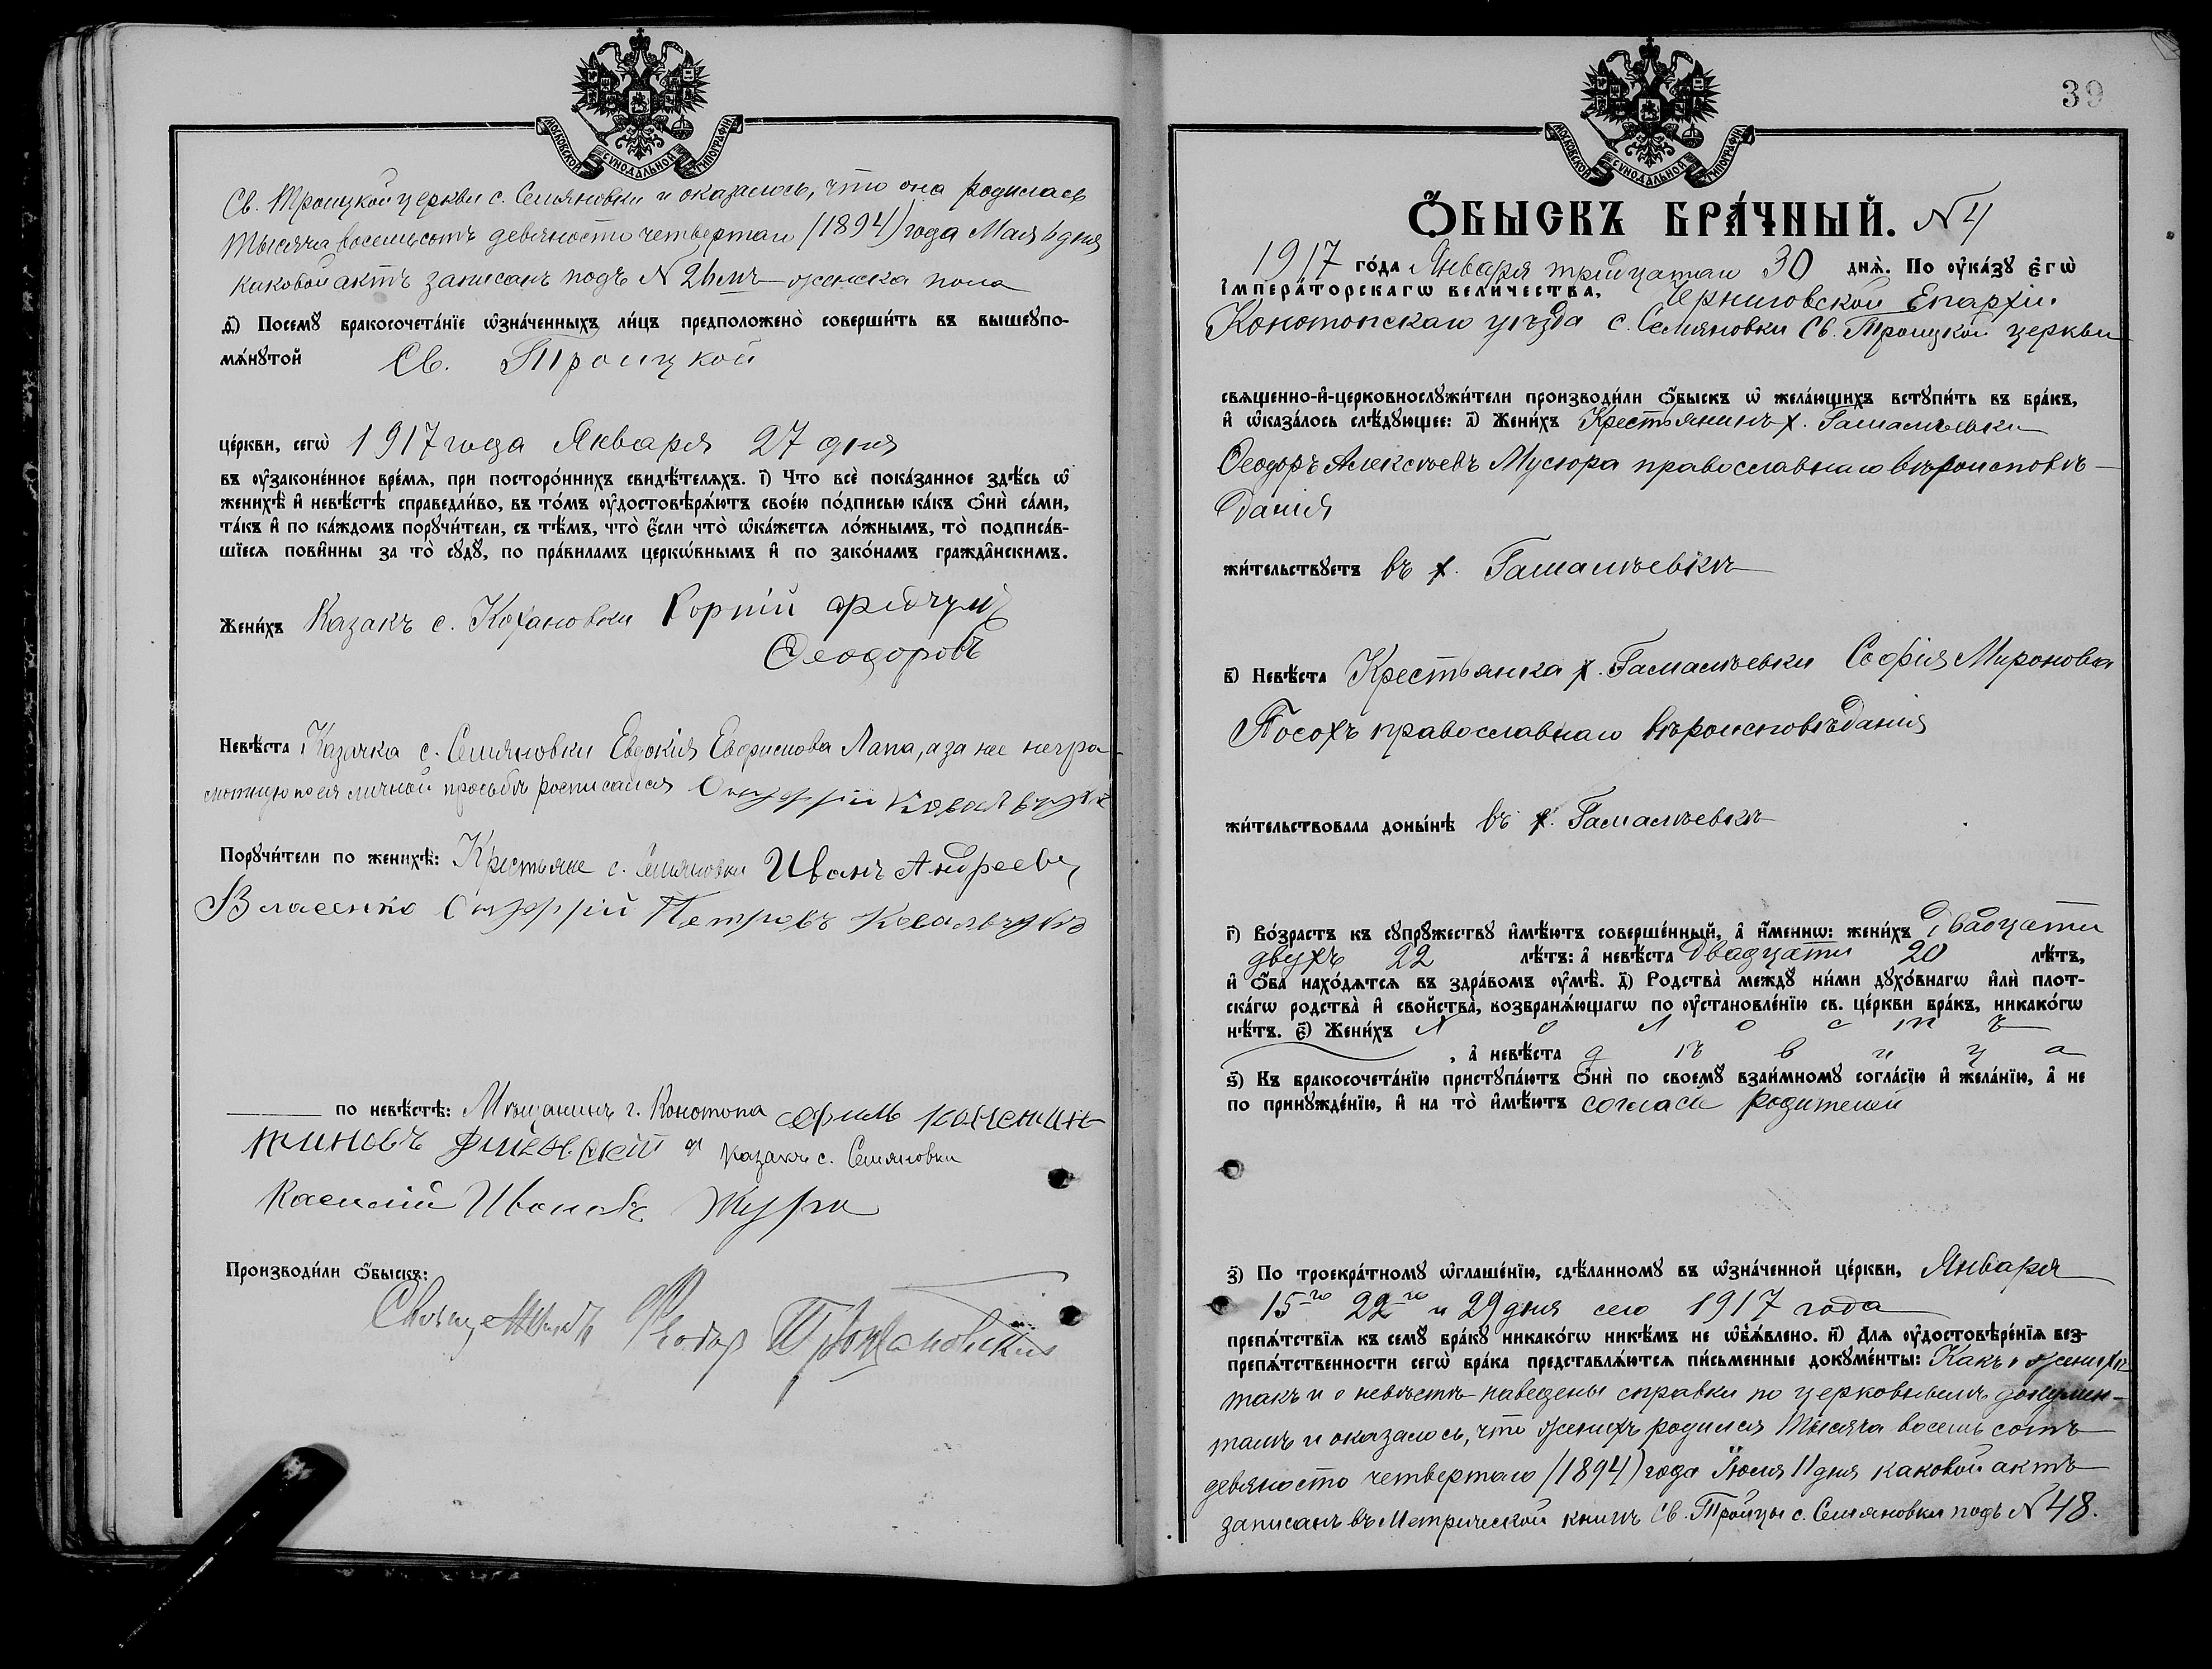 МОСКОВСКОЙ СѴНОДАЛЬНОЙ ТИПОГРАФІИ
Св. Троицкой церкви с. Семяновки и оказалось, что она родилась
тысяча восемьсотъ девяносто четвертаго (1894) года Мая 6 дня
каковой актъ записанъ подъ № 26мъ женска пола
ѳ҃) Посемꙋ бракосочета́нїе ѡ҆зна́ченныхъ ли́цъ предположено̀ соверши́ть въ вышеꙋпо-
мѧ́нꙋтой Св. Троицкой
це́ркви, сегѡ̀ 1917 года Января 27 дня
въ ᲂу҆законе́нное вре́мѧ, при посторо́ннихъ свидѣ́телѧхъ. і҃) Что всѐ пока́занное здѣ́сь ѡ҆
женихѣ̀ и҆ невѣ́стѣ справедли́во, въ то́мъ ᲂу҆достовѣрѧ́ютъ свое́ю по́дписью ка́къ ѻ҆нѝ са́ми,
та́къ и҆ по ка́ждомъ порꙋчи́тели, съ тѣ́мъ, что̀ є҆́сли что̀ ѡ҆ка́жетсѧ ло́жнымъ, то̀ подписа́в-
шїесѧ пови́нны за то̀ сꙋдꙋ̀, по пра́виламъ церкѡ́внымъ и҆ по зако́намъ гражда́нскимъ.
Жени́хъ Казакъ с. Кохановки Корній
Ѳеодоровъ
Невѣ́ста Казачка с. Семяновки Евдокія Лапа, а за нее негра-
мотную по ея личной просьбѣ росписался Онуфрій Ковальчукъ
Порꙋчи́тели по женихѣ̀: Крестьяне с. Семяновки Иванъ Андреевъ
Власенко Онуфрій Петровъ Ковальчукъ
по невѣ́стѣ: Мѣщанинъ г. Конотопа
и казакъ с. Семяновки
Василій Ивановъ Жура
Производи́ли ѻ҆́быскъ:
Священникъ Ѳеодор
39
МОСКОВСКОЙ СѴНОДАЛЬНОЙ ТИПОГРАФІИ
Ѻ҆́БЫСКЪ БРА́ЧНЫЙ. № 4
1917 го́да Января тридцатаго 30 днѧ̀. По ᲂу҆ка́зꙋ є҆гѡ̀
і҆мпера́торскагѡ вели́чества, Черниговской Епархіи
Конотопскаго уѣзда с. Семяновки Св. Троицкой церкви
свѧщенно-и҆-церковнослꙋжи́тели производи́ли ѻ҆́быскъ ѡ҆ жела́ющихъ встꙋпи́ть въ бра́къ,
и҆ ѡ҆каза́лось слѣ́дꙋющее: а҃) Жени́хъ Крестьянинъ х. Гамалѣевки
Ѳеодоръ Алексѣевъ Мусюра православнаго вѣроисповѣ-
данія
жи́тельствꙋетъ въ х. Гамалѣевкѣ
в҃) Невѣ́ста Крестьянка х. Гамалѣевки Софія Миронова
Посохъ православнаго вѣроисповѣданія
жи́тельствовала доны́нѣ въ х. Гамалѣевкѣ
г҃) Во́зрастъ къ сꙋпрꙋ́жествꙋ и҆мѣ́ютъ соверше́нный, а҆ и҆́меннѡ: жени́хъ двадцати
двухъ 22 лѣ́тъ: а҆ невѣ́ста двадцати 20 лѣ́тъ,
и҆ ѻ҆́ба нахо́дѧтсѧ въ здра́вомъ ᲂу҆мѣ̀. д҃) Родства̀ междꙋ̀ ни́ми дꙋхо́внагѡ и҆лѝ плот-
ска́гѡ родства̀ и҆ сво́йства, возбранѧ́ющагѡ по ᲂу҆становле́нїю св. це́ркви бра́къ, никако́гѡ
нѣ́тъ. є҃) Жени́хъ холостъ
, а҆ невѣ́ста дѣвица
ѕ҃) Къ бракосочета́нїю пристꙋпа́ютъ ѻ҆нѝ по своемꙋ̀ взаи́мномꙋ согла́сїю и҆ жела́нїю, а҆ не
по принꙋжде́нїю, и҆ на то̀ и҆мѣ́ютъ согласіе родителей
з҃) По троекра́тномꙋ ѡ҆глаше́нїю, сдѣ́ланномꙋ въ ѡ҆зна́ченной це́ркви, Января
15го 22го и 29 дня сего 1917 года
препѧ́тствїѧ къ семꙋ̀ бра́кꙋ никако́гѡ никѣ́мъ не ѡ҆б̾ѧ́влено. и҃) Длѧ ᲂу҆достовѣре́нїѧ без-
препѧ́тственности сегѡ̀ бра́ка представлѧ́ютсѧ пи́сьменные докꙋме́нты: Какъ о женихѣ
такъ и о невѣстѣ наведены справки по церковнымъ докумен-
тамъ и оказалось, что женихъ родился тысяча восемьсотъ
девяносто четвертаго (1894) года Іюля 11 дня каковой актъ
записанъ въ Метрической книгѣ Св. Троицы с. Семяновки подъ № 48.